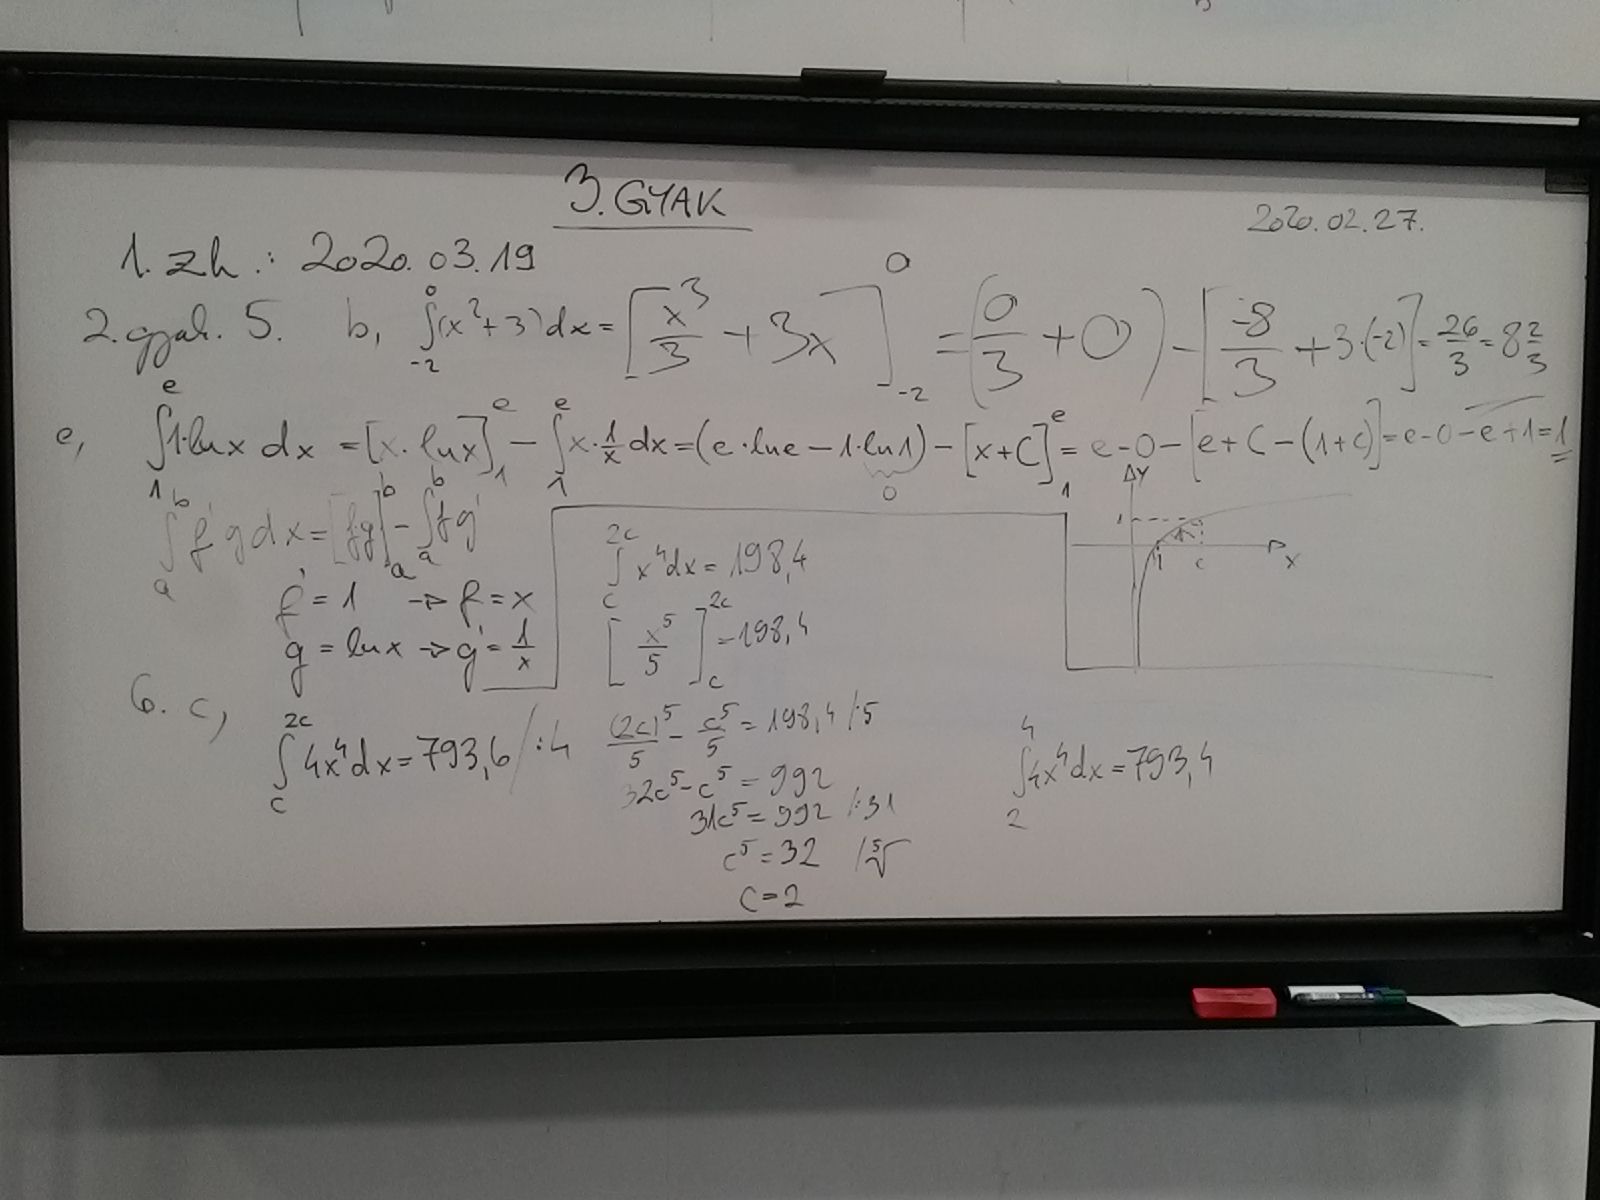 3. GYAK
2020.02.27.
1. zh.: 2020.03.19
2. gyak. 5. b, ∫_{-2}^{0} (x²+3) dx = [x³/3 + 3x]_{-2}^{0} = (0/3 + 0) - [-8/3 + 3·(-2)] = 26/3 = 8 2/3
e, ∫_{1}^{e} 1·lnx dx = [x·lnx]_{1}^{e} - ∫_{1}^{e} x·1/x dx = (e·lne - 1·ln1) - [x+C]_{1}^{e} = e-0-[e+C-(1+C)] = e-0-e+1 = 1
0
∫_{a}^{b} f'g dx = [fg]_{a}^{b} - ∫_{a}^{b} fg'
f' = 1 → f = x
g = lnx → g' = 1/x
y
1
1
e
x
6. c,
∫_{c}^{2c} 4x⁴dx = 793,6 /:4
∫_{c}^{2c} x⁴dx = 198,4
[x⁵/5]_{c}^{2c} = 198,4
(2c)⁵/5 - c⁵/5 = 198,4 /·5
32c⁵ - c⁵ = 992
31c⁵ = 992 /:31
c⁵ = 32 /⁵√
c = 2
∫_{2}^{4} 4x⁴dx = 793,4